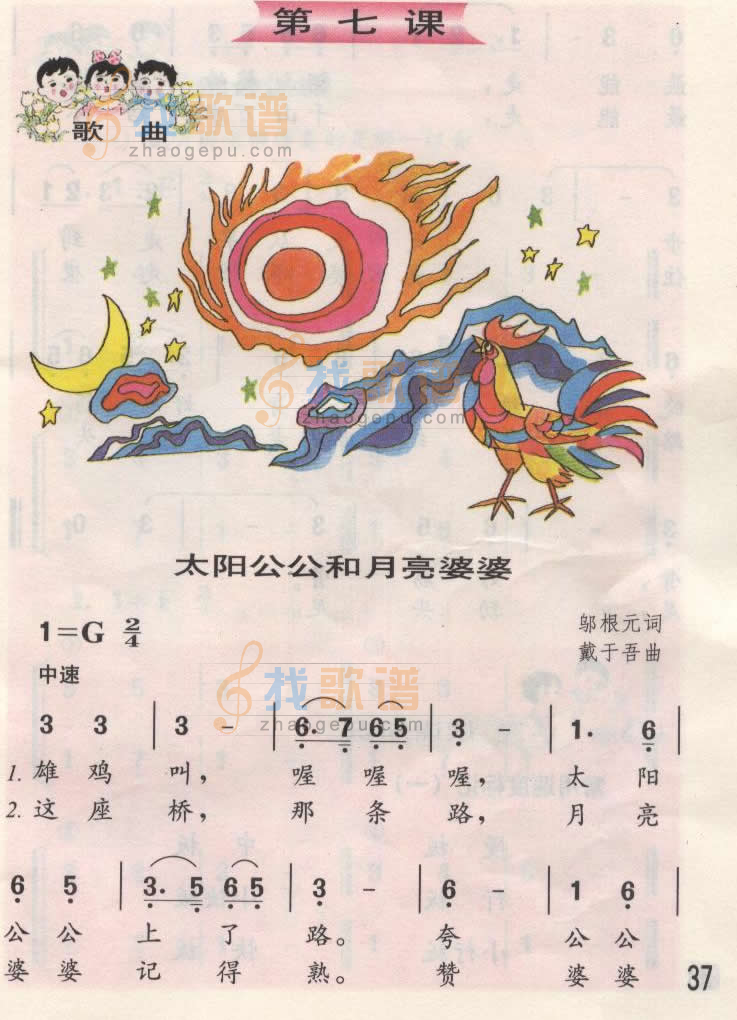 第七课
歌 曲
找歌谱
zhaogepu.com
找歌谱
zhaogepu.com
太阳公公和月亮婆婆
1=G 2/4
邬根元词
戴于吾曲
中速
找歌谱
zhaogepu.com
3 3 | 3 - | 6. 7 6 5 | 3 - | 1. 6 |
1. 雄 鸡 叫， 喔 喔 喔， 太 阳
2. 这 座 桥， 那 条 路， 月 亮
6 5 | 3. 5 6 5 | 3 - | 6 - | 1 6 |
公 公 上 了 路。 夸 公 公
婆 婆 记 得 熟。 赞 婆 婆
37